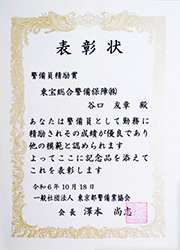 表彰状
警備員精励賞
東宝総合警備保障㈱
谷口 友章 殿
あなたは警備員として勤務に
精励されその成績が優良であり
他の模範と認めます
よってここに記念品を添えて
これを表彰します
令和6年10月18日
一般社団法人 東京都警備業協会
会長 澤本 尚志